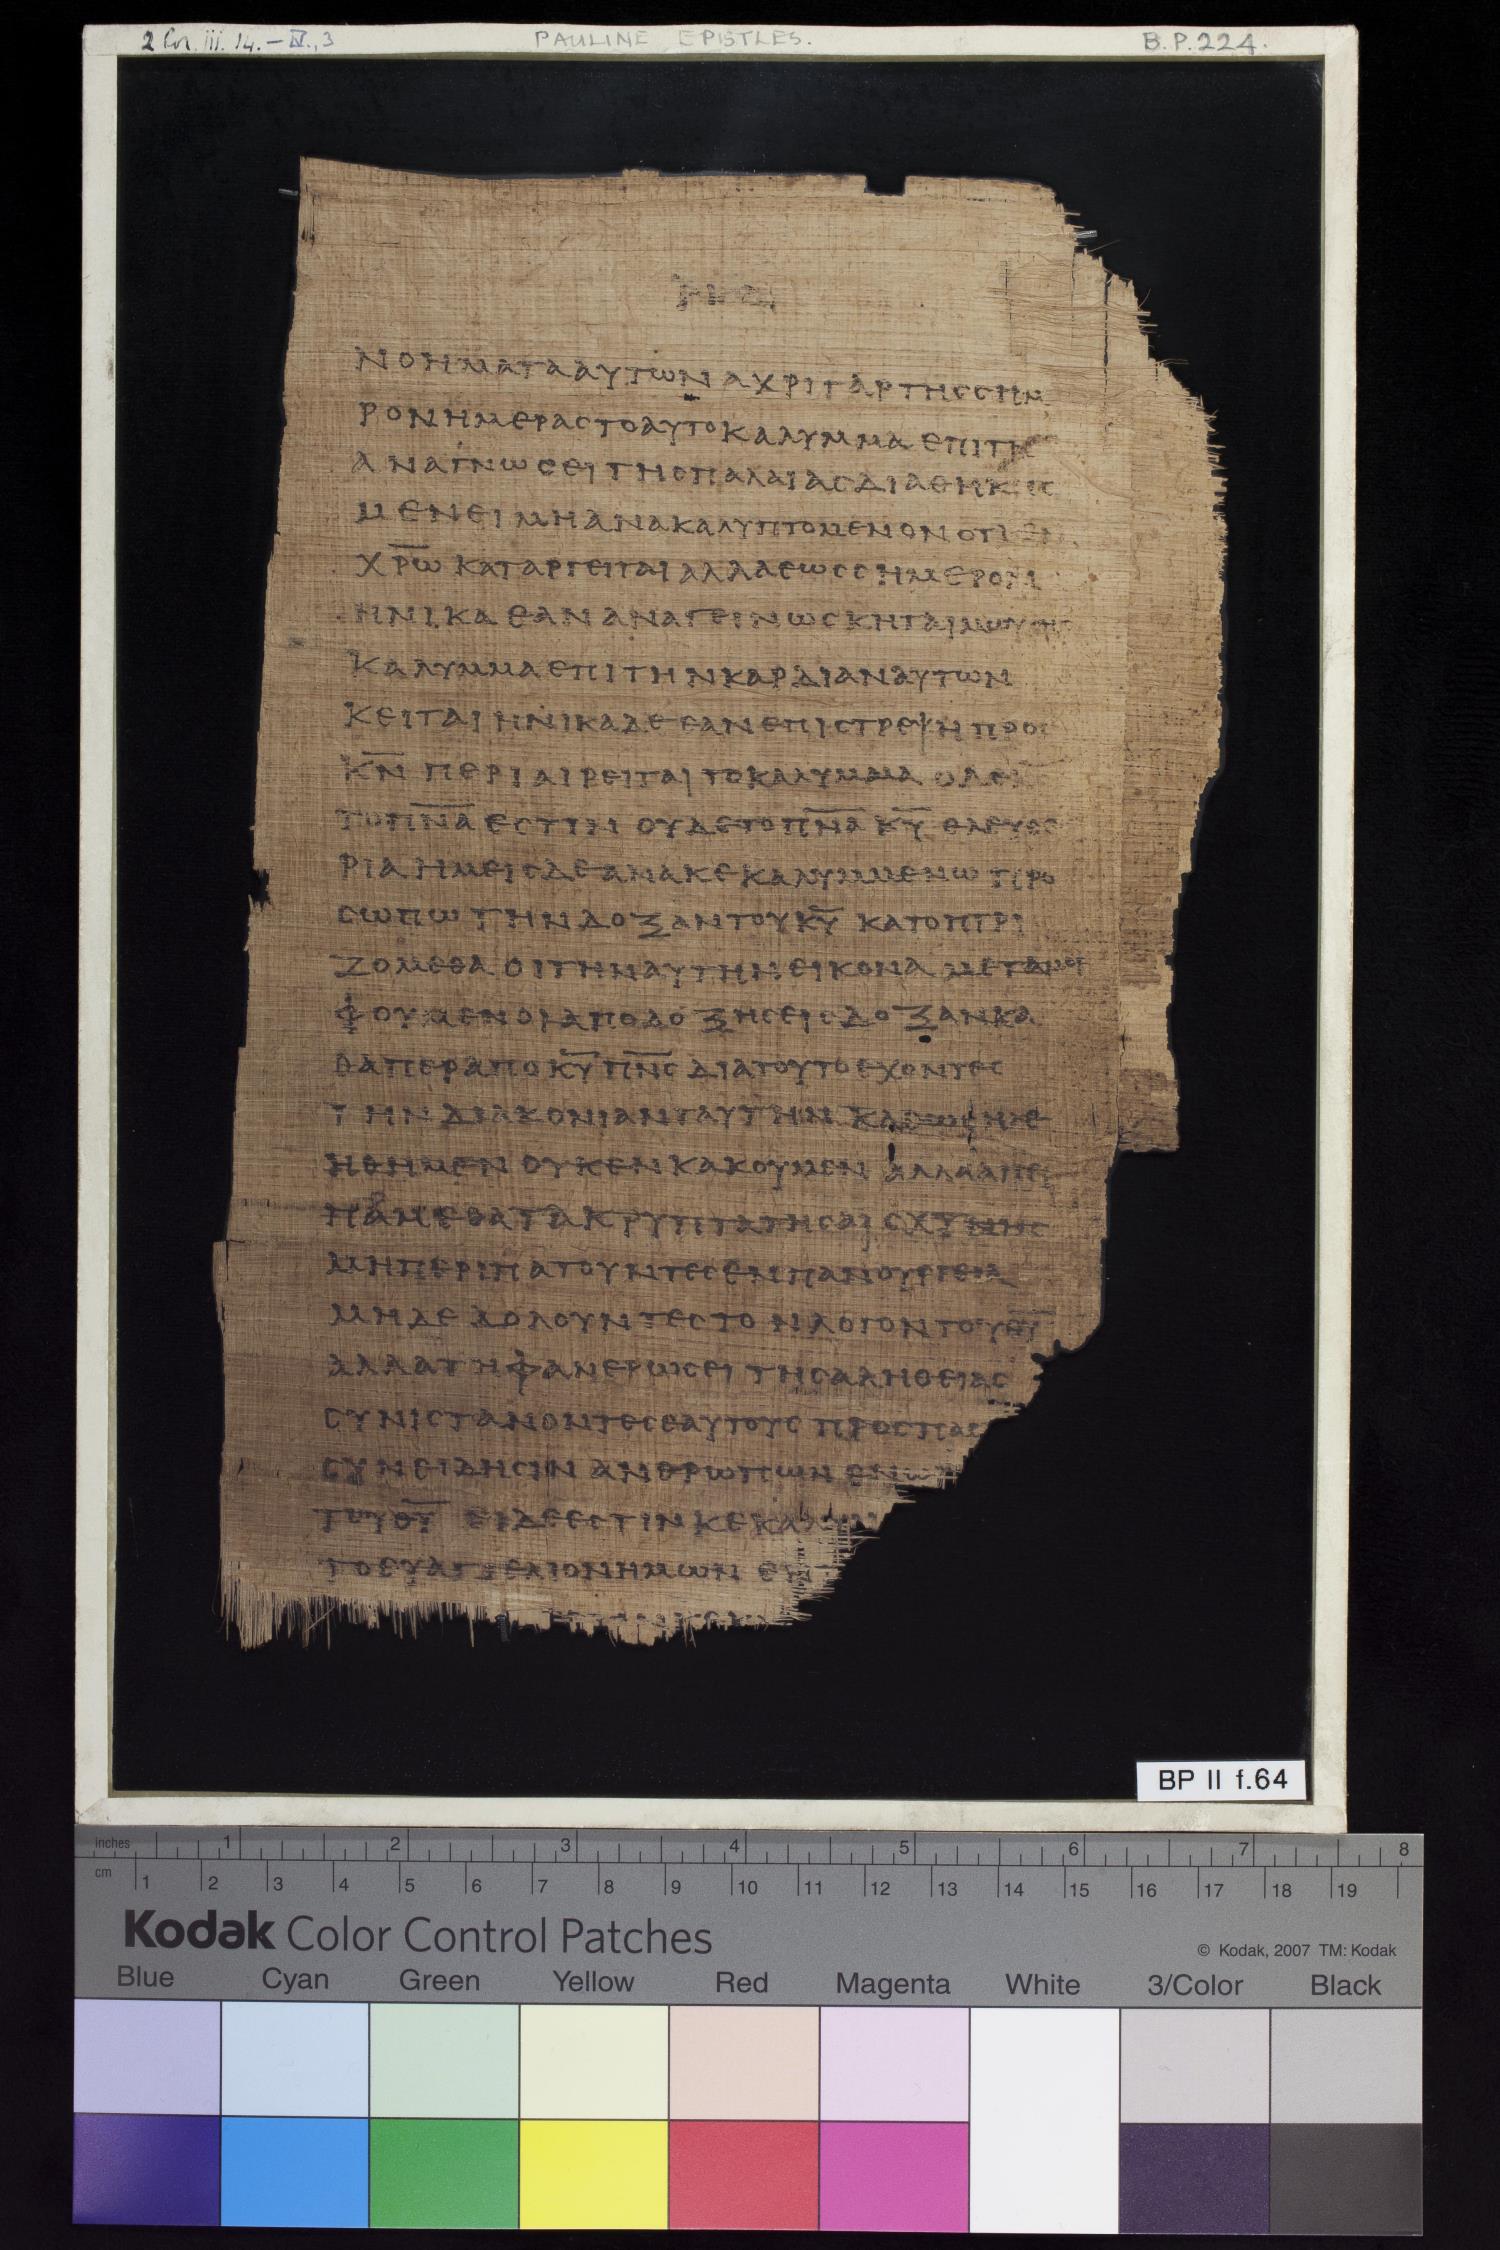 2 Cor. iii. 14.—IV., 3 PAULINE EPISTLES. B.P. 224.
ΝΟΗΜΑΤΑΑΥΤΩΝ ΑΧΡΙΓΑΡΤΗССΗΜ
ΡΟΝΗΜΕΡΑСΤΟΑΥΤΟΚΑΛΥΜΜΑ ΕΠΙΤΗ
ΑΝΑΓΝΩСΕΙ ΤΗСΠΑΛΑΙΑСΔΙΑΘΗΚΗС
ΜΕΝΕΙ ΜΗΑΝΑΚΑΛΥΠΤΟΜΕΝΟΝ ΟΤΙ ΕΝ
ΧΡ̅Ω̅ ΚΑΤΑΡΓΕΙΤΑΙ ΑΛΛΑΕΩССΗΜΕΡΟΝ
ΗΝΙΚΑ ΕΑΝ ΑΝΑΓΕΙΝΩСΚΗΤΑΙ ΜΩΥСΗС
ΚΑΛΥΜΜΑ ΕΠΙ ΤΗΝΚΑΡΔΙΑΝΑΥΤΩΝ
ΚΕΙΤΑΙ ΗΝΙΚΑΔΕ ΕΑΝ ΕΠΙСΤΡΕΨΗ ΠΡΟС
Κ̅Ν̅ ΠΕΡΙΑΙΡΕΙΤΑΙ ΤΟΚΑΛΥΜΜΑ ΟΔΕΚ
ΤΟΠ̅Ν̅Α̅ ΕСΤΙΝ ΟΥΔΕΤΟΠ̅Ν̅Α̅ Κ̅Υ̅ ΕΛΕΥΘΕ
ΡΙΑ ΗΜΕΙСΔΕ ΑΝΑΚΕΚΑΛΥΜΜΕΝΩ ΠΡΟ
СΩΠΩ ΤΗΝ ΔΟΞΑΝΤΟΥΚ̅Υ̅ ΚΑΤΟΠΤΡΙ
ΖΟΜΕΘΑ ΟΙΤΗΝΑΥΤΗΝ ΕΙΚΟΝΑ ΜΕΤΑΜΟΡ
ΦΟΥΜΕΝΟΙ ΑΠΟΔΟΞΗСΕΙС ΔΟΞΑΝΚΑ
ΘΑΠΕΡ ΑΠΟ Κ̅Υ̅ Π̅Ν̅С̅ ΔΙΑΤΟΥΤΟΕΧΟΝΤΕС
ΤΗΝ ΔΙΑΚΟΝΙΑΝΤΑΥΤΗΝ ΚΑΘΩСΗΛΕ
ΗΘΗΜΕΝ ΟΥΚΕΝΚΑΚΟΥΜΕΝ ΑΛΛΑΑΠΕΙ
ΠΑΜΕΘΑ ΤΑ ΚΡΥΠΤΑΤΗСΑΙСΧΥΝΗС
ΜΗΠΕΡΙΠΑΤΟΥΝΤΕС ΕΝ ΠΑΝΟΥΡΓΕΙΑ
ΜΗΔΕ ΔΟΛΟΥΝΤΕС ΤΟΝΛΟΓΟΝ ΤΟΥΘ̅Υ̅
ΑΛΛΑΤΗΦΑΝΕΡΩСΕΙ ΤΗСΑΛΗΘΕΙΑС
СΥΝΙСΤΑΝΟΝΤΕС ΕΑΥΤΟΥС ΠΡΟСΠΑС
СΥΝΕΙΔΗСΙΝ ΑΝΘΡΩΠΩΝ ΕΝΩ
ΤΟΥΘ̅Υ̅ ΕΙΔΕΕСΤΙΝ ΚΕΚΑΛΥΜ
ΤΟΕΥΑΓΓΕΛΙΟΝΗΜΩΝ ΕΝΤ
BP II f.64
inches 1 2 3 4 5 6 7 8
cm 1 2 3 4 5 6 7 8 9 10 11 12 13 14 15 16 17 18 19
Kodak Color Control Patches © Kodak, 2007 TM: Kodak
Blue Cyan Green Yellow Red Magenta White 3/Color Black